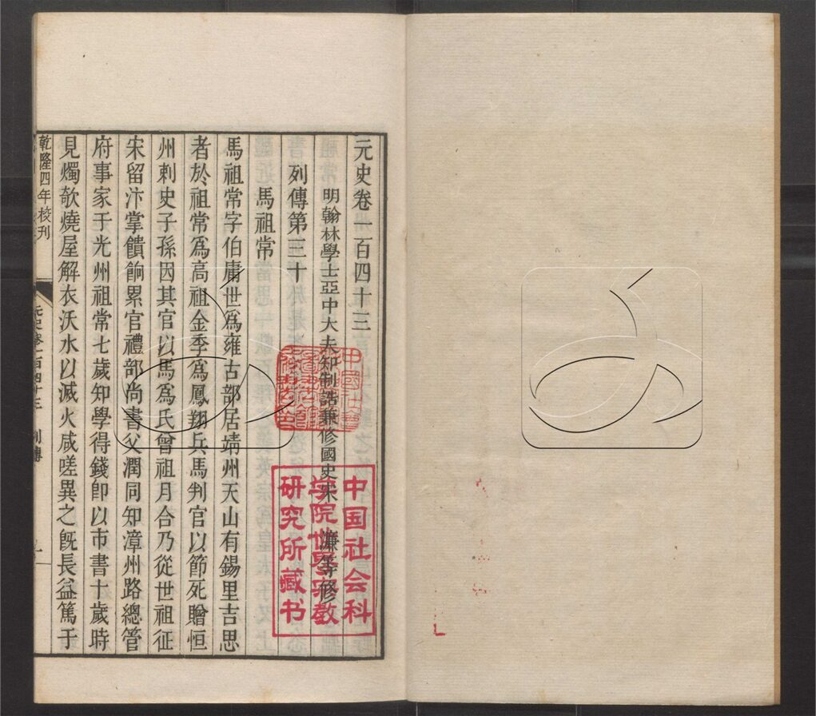 元史卷一百四十三
明翰林學士亞中大夫知制誥兼修國史宋濂等修
列傳第三十
馬祖常
馬祖常字伯庸世爲雍古部居靖州天山有錫里吉思
者於祖常爲高祖金季爲鳳翔兵馬判官以節死贈恒
州刺史子孫因其官以馬爲氏曾祖月合乃從世祖征
宋留汴掌饋餉累官禮部尚書父潤同知漳州路總管
府事家于光州祖常七歲知學得錢卽以市書十歲時
見燭欹燒屋解衣沃水以滅火咸嗟異之旣長益篤于
乾隆四年校刊
元史卷一百四十三 列傳
一
中国社会科
学院世界宗教
研究所藏书